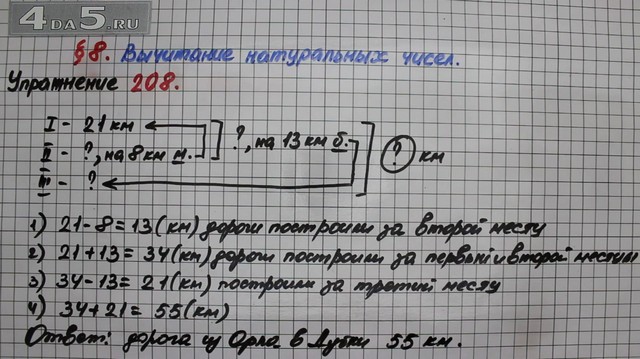 4DA5.RU
§8. Вычитание натуральных чисел.
Упражнение 208.
I - 21 км
II - ?, на 8 км м.
?, на 13 км б.
III - ?
? км
1) 21-8=13(км) дороги построили за второй месяц
2) 21+13=34(км) дороги построили за первый и второй месяцы
3) 34-13=21(км) построили за третий месяц
4) 34+21=55(км)
Ответ: дорога из Орла в Дубки 55 км.